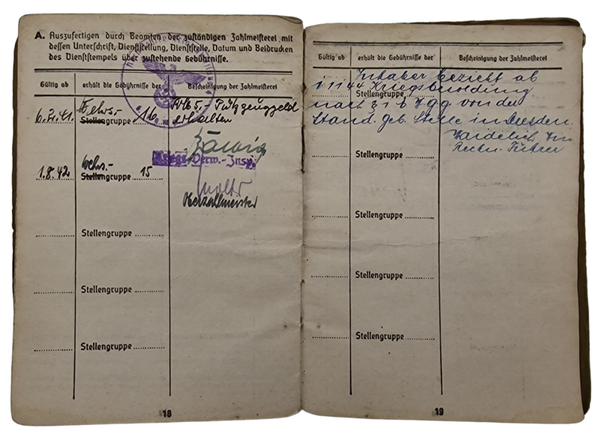 A. Auszufertigen durch Beamten der zuständigen Zahlmeisterei mit
dessen Unterschrift, Dienststellung, Dienststelle, Datum und Beidrucken
des Dienststempels über zustehende Gebührnisse.
Gültig ab erhält die Gebührnisse der Bescheinigung der Zahlmeisterei
6.2.41. Wehrs.- RM 5,- Putzzeuggeld
Stellengruppe 16 erhalten
Kriegs-Verw.-Insp.
1.8.42. Wehrs.-
Stellengruppe 15
Oberzahlmeister
Stellengruppe
Stellengruppe
Stellengruppe
18
Gültig ab erhält die Gebührnisse der Bescheinigung der Zahlmeisterei
Inhaber bezieht ab
Stellengruppe
1.1.44 Kriegsbesoldung
nach von der
Stand. geb. Stelle in Dresden.
Stellengruppe
Stellengruppe
Stellengruppe
Stellengruppe
19